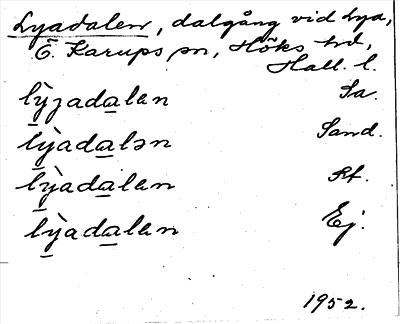 Lyadalen, dalgång vid Lya,
Ö. Karups sn, Höks hd,
Hall. l.
lỳjadalen Sa.
lỳadalən Sand.
lỳadalen Rt.
lỳadalen Ej.
1952.